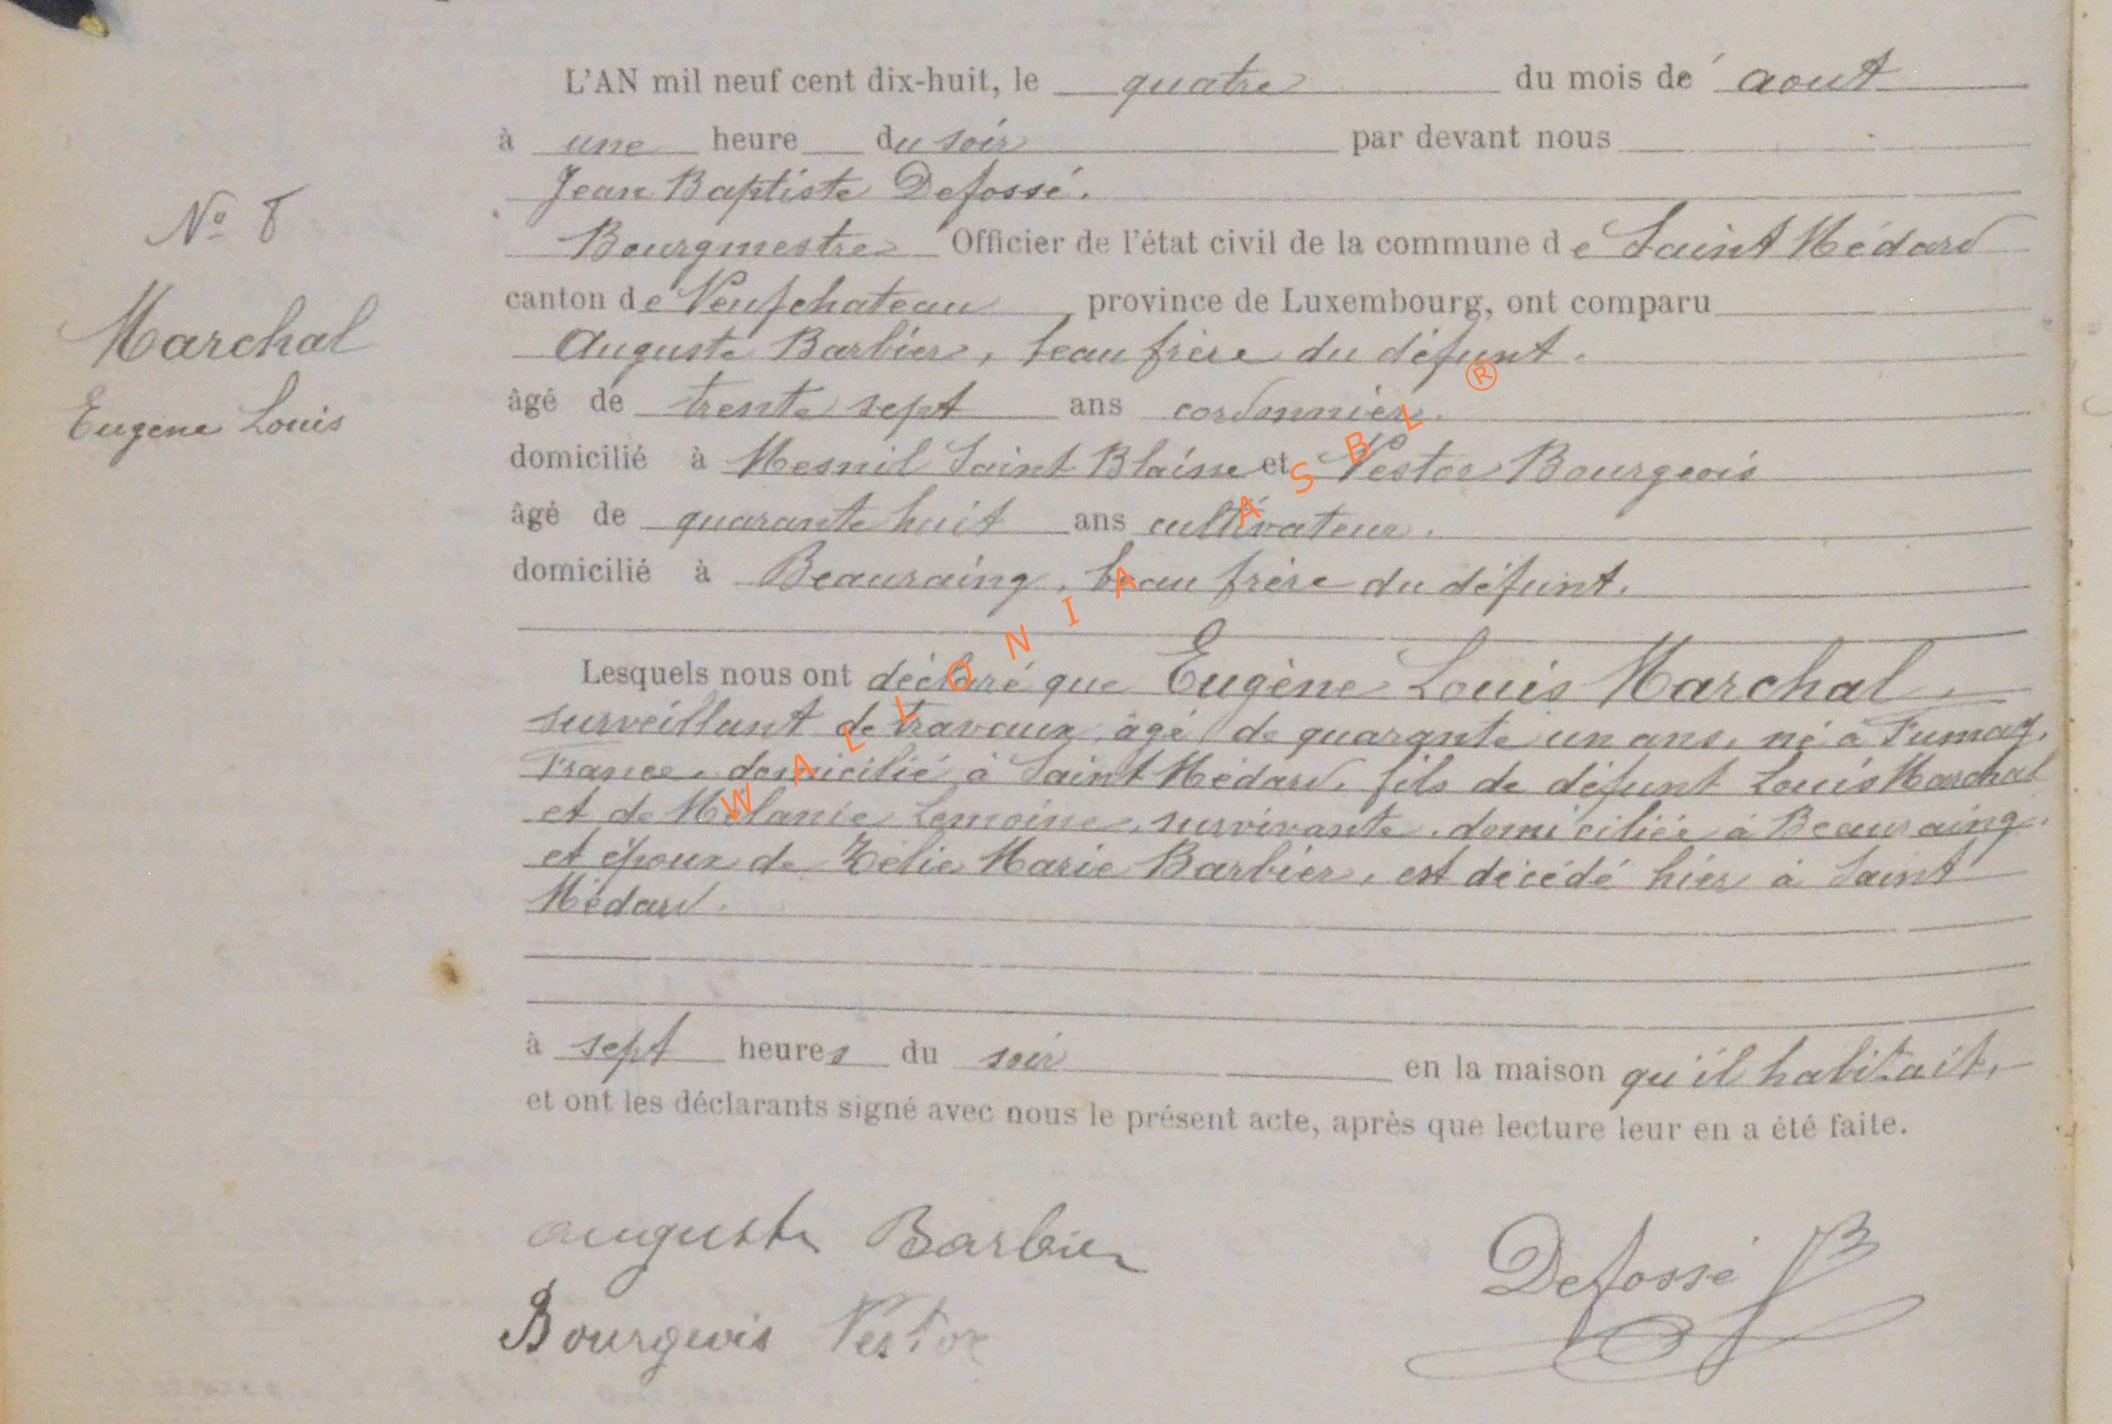 L'AN mil neuf cent dix-huit, le quatre du mois de aout
à une heure du soir par devant nous
Jean Baptiste Defossé.
Bourgmestre Officier de l'état civil de la commune de Saint Médard
canton de Neufchateau, province de Luxembourg, ont comparu
Auguste Barbier, beau frère du défunt.
âgé de trente sept ans cordonnier.
domicilié à Mesnil Saint Blaise et Nestor Bourgeois
âgé de quarante huit ans cultivateur.
domicilié à Beauraing, beau frère du défunt.
Lesquels nous ont déclaré que Eugène Louis Marchal,
surveillant de travaux, âgé de quarante un ans, né à Fumay,
France, domicilié à Saint Médard, fils de défunt Louis Marchal
et de Mélanie Lemoine, survivante, domiciliée à Beauraing,
et époux de Zélie Marie Barbier, est décédé hier à Saint
Médard.
à sept heures du soir en la maison qu'il habitait,
et ont les déclarants signé avec nous le présent acte, après que lecture leur en a été faite.
Auguste Barbier
Defossé JB
Bourgeois Nestor
No 8
Marchal
Eugène Louis
WALLONIA ASBL ®